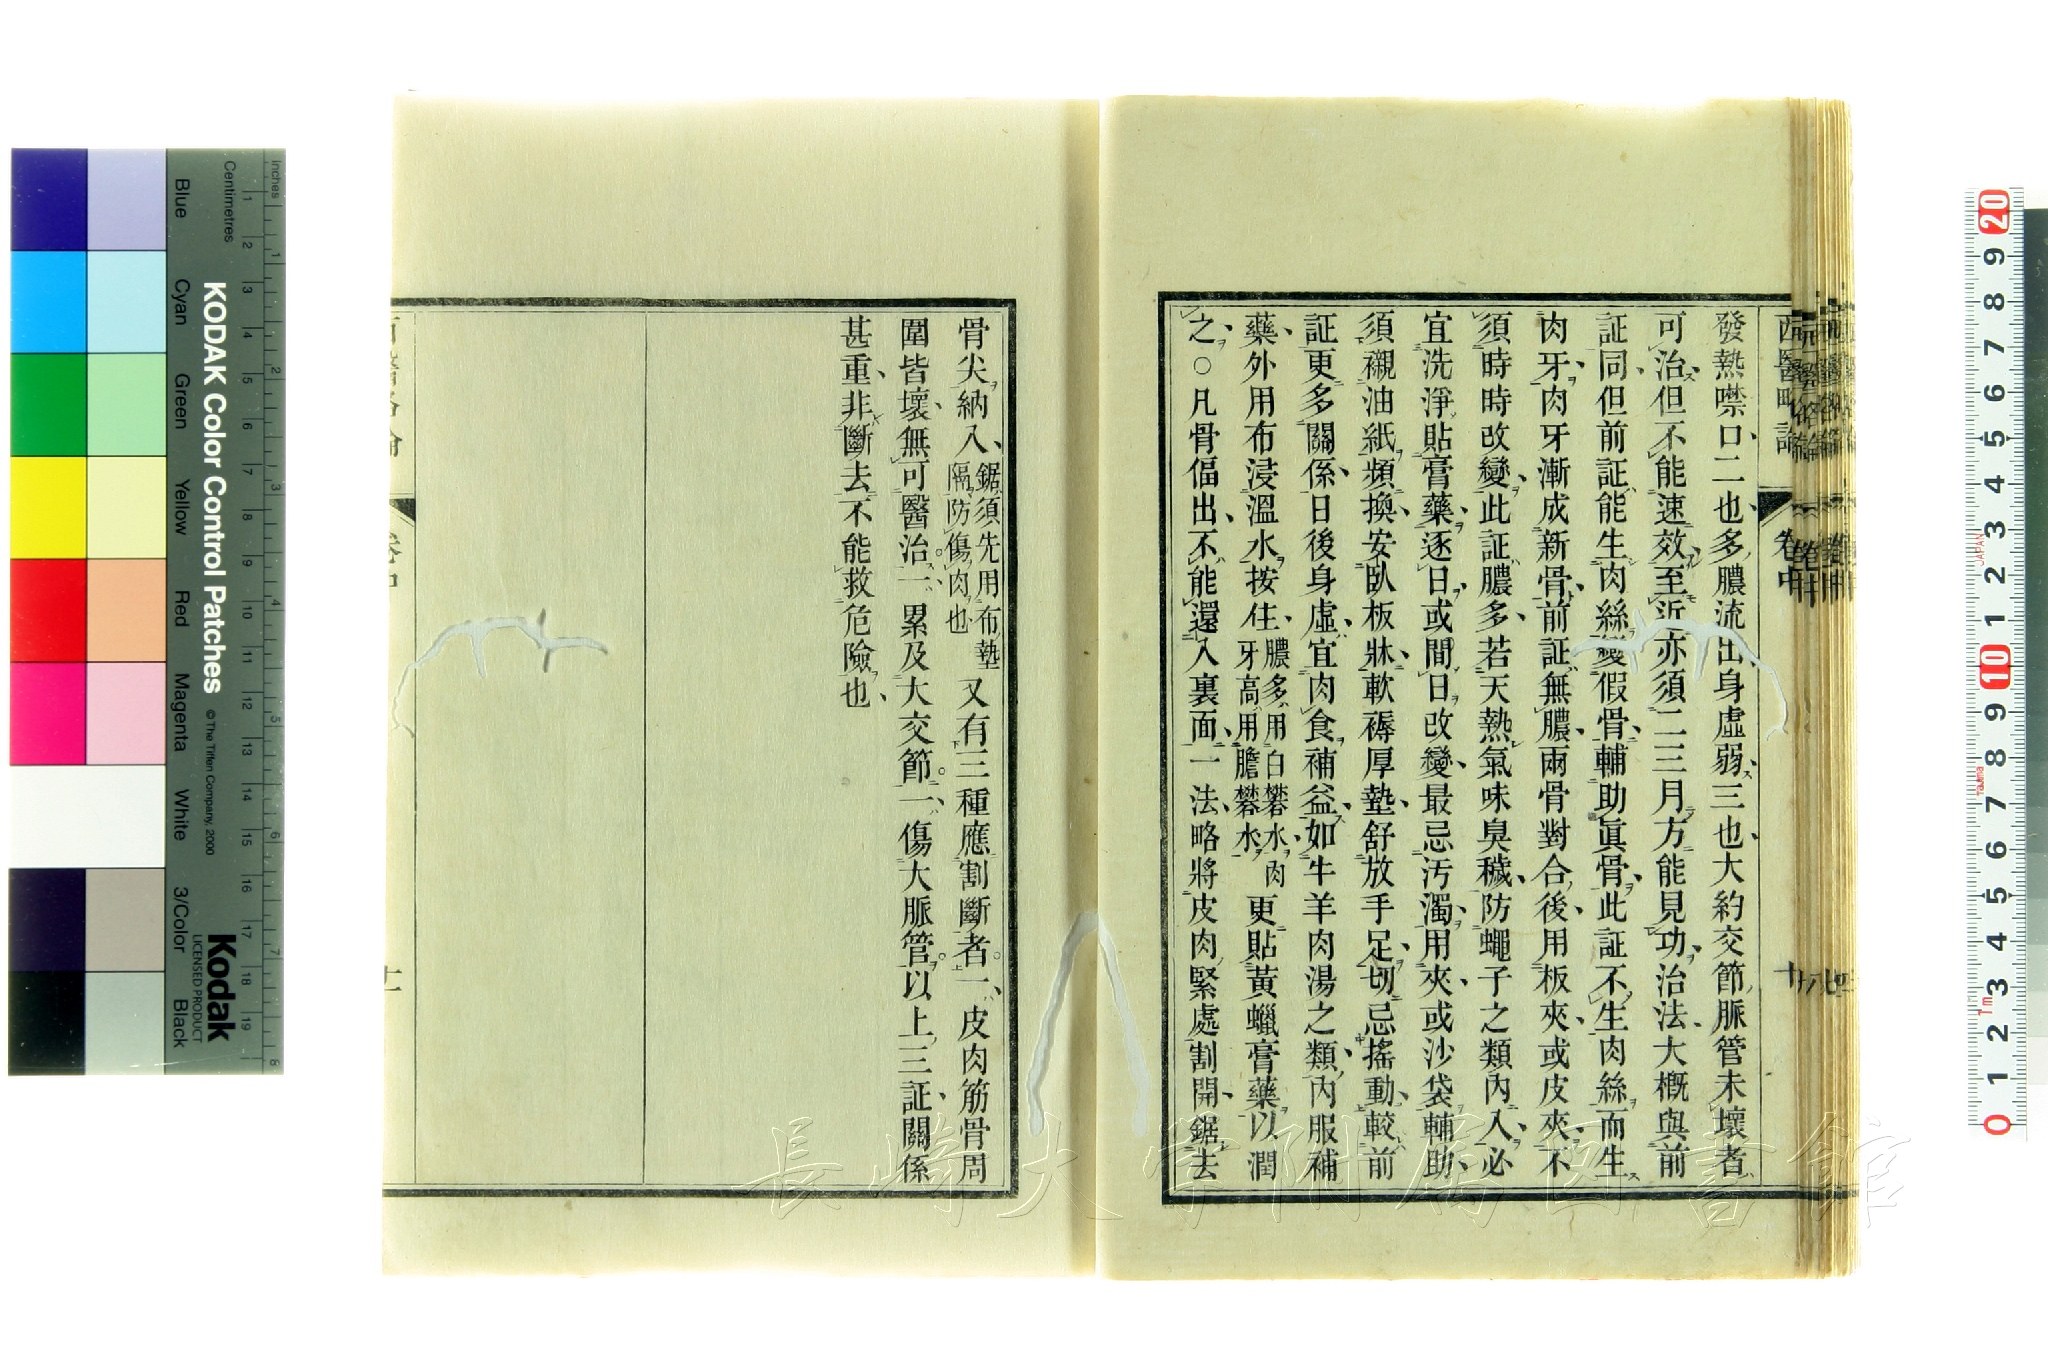 西醫略論
卷中
發熱噤口二也多膿流出身虛弱三也大約交節脈管未壞者
可治但不能速效至近亦須二三月方能見功治法大概與前
証同但前証能生肉絲變假骨輔助眞骨此証不生肉絲而生
肉牙肉牙漸成新骨前証無膿兩骨對合後用板夾或皮夾不
須時時改變此証膿多若天熱氣味臭穢防蠅子之類內入必
宜洗淨貼膏藥逐日或間日改變最忌污濁用夾或沙袋輔助
須襯油紙頻換安臥板牀軟褥厚墊舒放手足切忌搖動較前
証更多關係日後身虛宜肉食補益如牛羊肉湯之類內服補
藥外用布浸溫水按住膿多用白礬水肉牙高用膽礬水更貼黃蠟膏藥以潤
之○凡骨偪出不能還入裏面一法略將皮肉緊處割開鋸去
骨尖納入鋸須先用布墊隔防傷肉也又有三種應割斷者一皮肉筋骨周
圍皆壞無可醫治一累及大交節一傷大脈管以上三証關係
甚重非斷去不能救危險也
KODAK Color Control Patches
© The Tiffen Company, 2000
Kodak
LICENSED PRODUCT
Inches
Centimetres
Blue
Cyan
Green
Yellow
Red
Magenta
White
3/Color
Black
長崎大学附属図書館